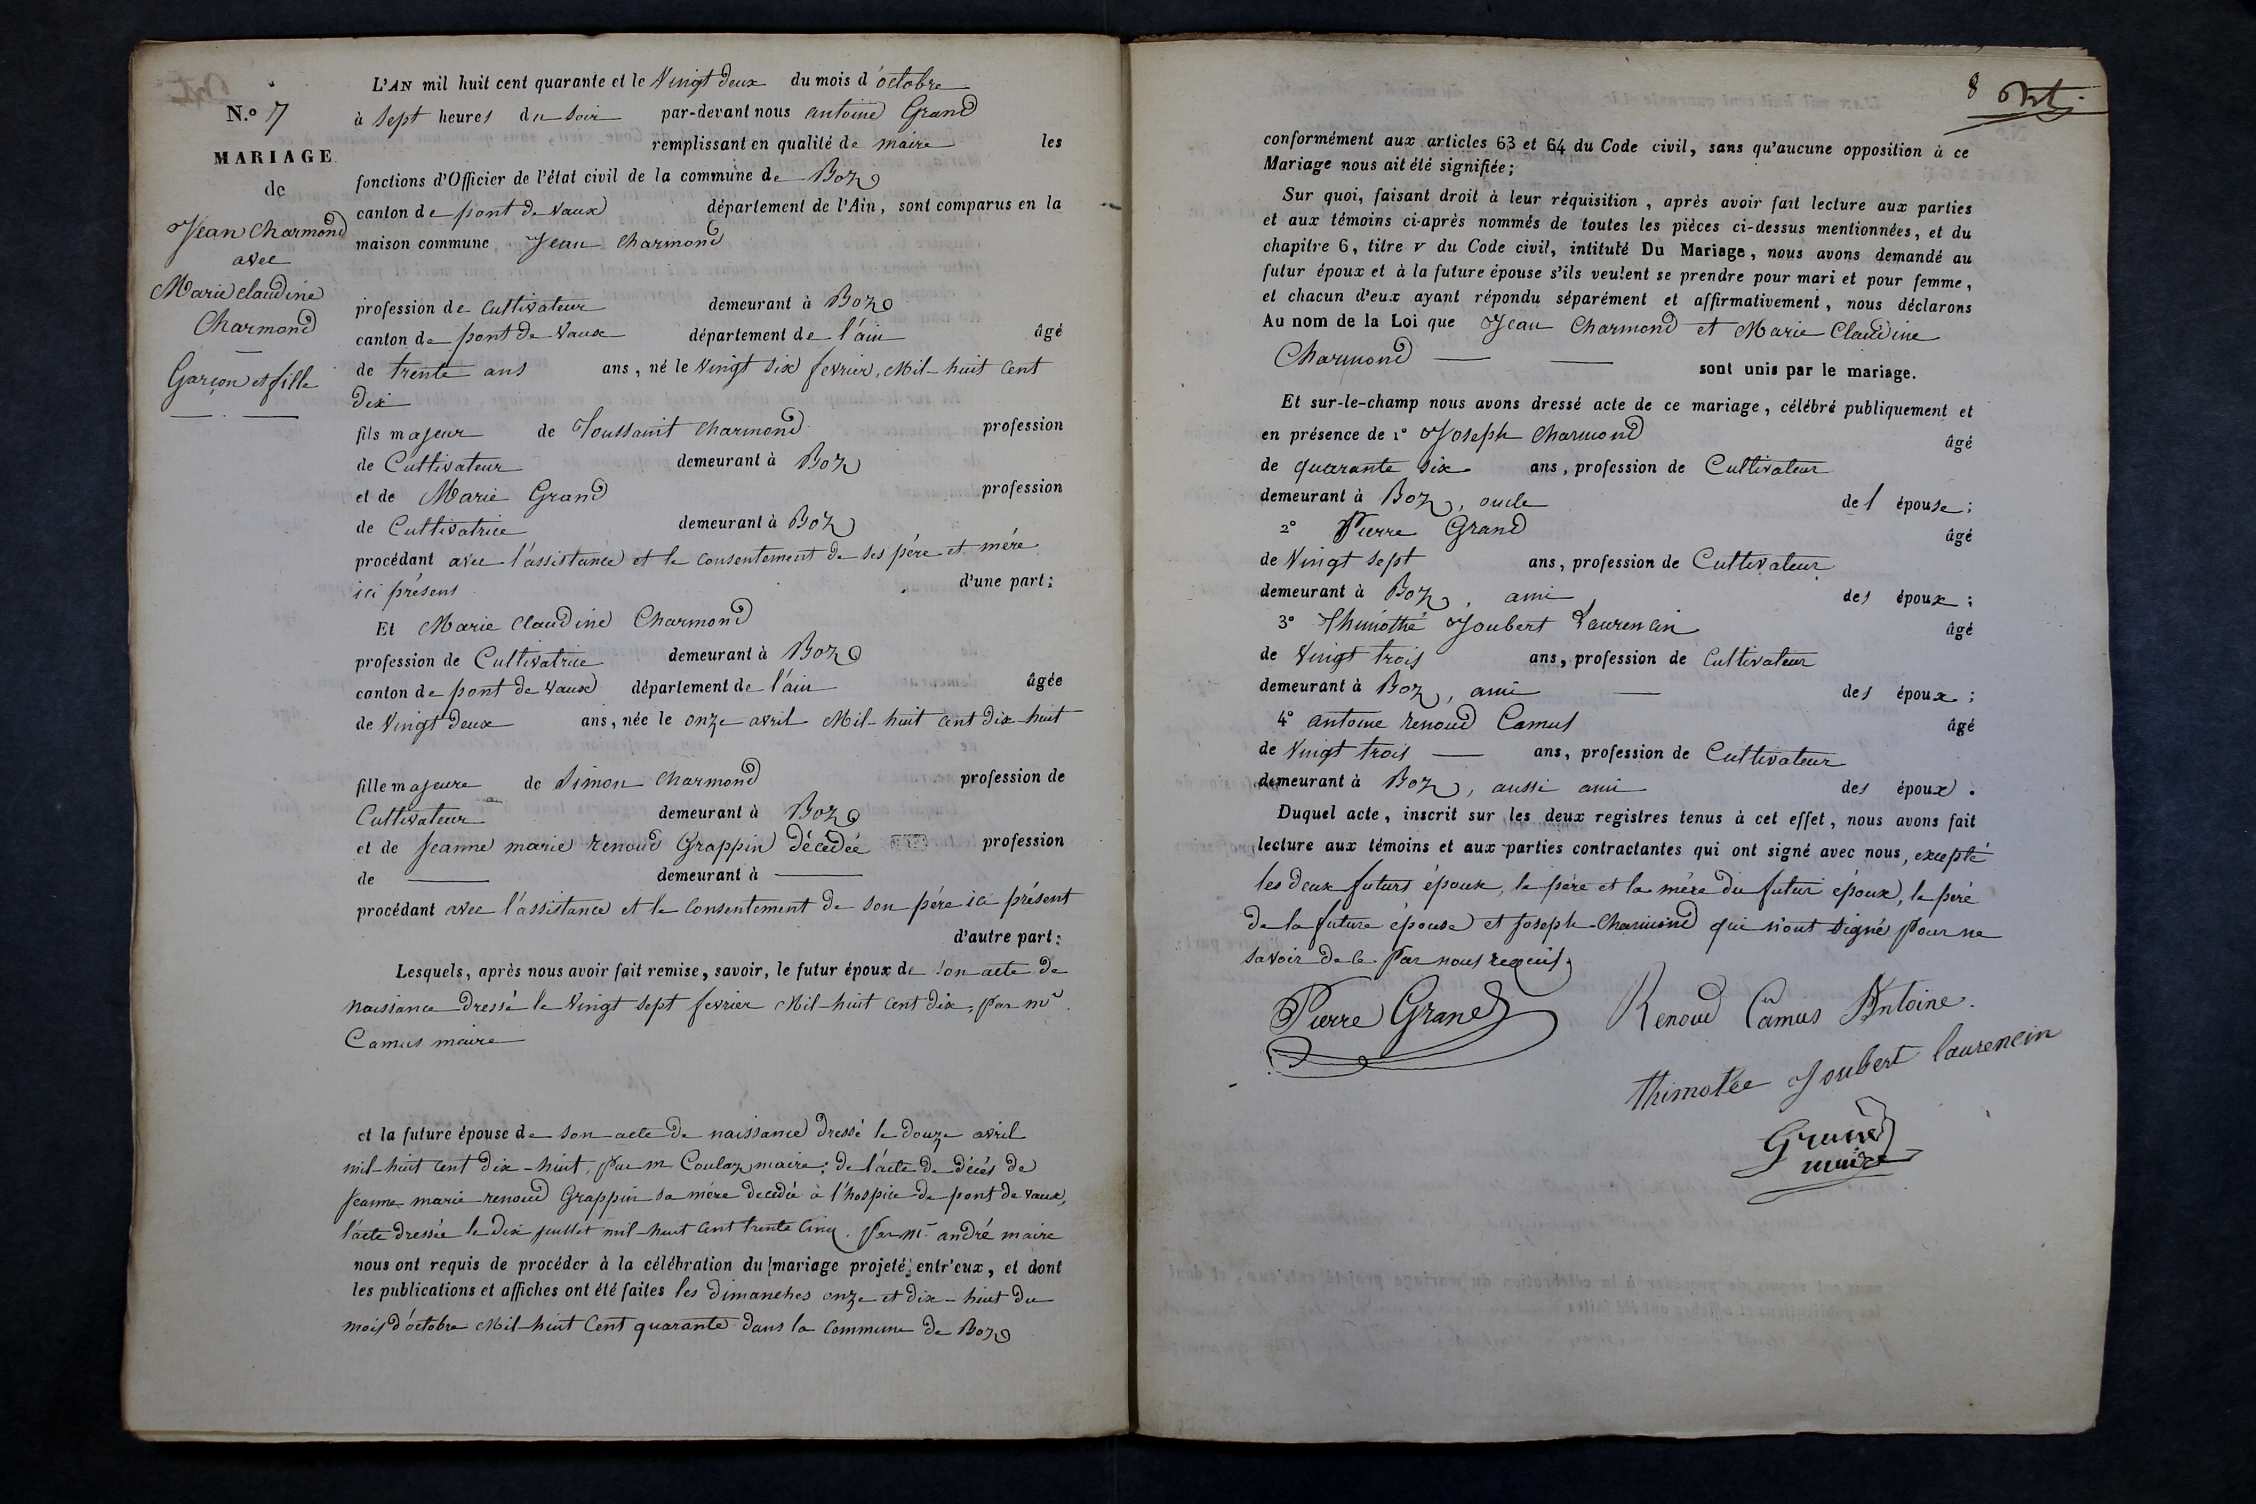 N.° 7
MARIAGE
de
Jean Charmond
avec
Marie Claudine
Charmond
Garçon et fille
L'AN mil huit cent quarante et le Vingt deux du mois d'octobre
à Sept heures du Soir par-devant nous antoine Grand
remplissant en qualité de maire les
fonctions d'Officier de l'état civil de la commune de Boz
canton de pont de Vaux département de l'Ain, sont comparus en la
maison commune Jean Charmond
profession de Cultivateur demeurant à Boz
canton de pont de Vaux département de l'ain âgé
de trente ans ans, né le Vingt Six fevrier, Mil-huit Cent
Dix
fils majeur de Toussaint Charmond profession
de Cultivateur demeurant à Boz
et de Marie Grand profession
de Cultivatrice demeurant à Boz
procédant avec l'assistance et le consentement de ses pére et mére
ici présens d'une part;
Et Marie Claudine Charmond
profession de Cultivatrice demeurant à Boz
canton de pont de Vaux département de l'ain âgée
de Vingt Deux ans, née le onze avril Mil-huit Cent Dix-huit
fille majeure de Simon Charmond profession de
Cultivateur demeurant à Boz
et de Jeanne marie renoud Grappin décédée profession
de demeurant à
procédant avec l'assistance et le Consentement de Son pére ici présent
d'autre part:
Lesquels, après nous avoir fait remise, savoir, le futur époux de Son acte de
Naissance Dressé le Vingt Sept fevrier Mil-huit Cent Dix, par mr
Camus maire
et la future épouse de Son acte De naissance Dressé le douze avril
mil-huit Cent Dix-huit, par m Coulaz maire; de l'acte De Décés de
Jeanne marie renoud Grappin Sa mére Decedée à l'hospice De pont de Vaux,
l'acte Dressée le Dix juillet mil-huit Cent trente Cinq. Par mr andré maire
nous ont requis de procéder à la célébration du mariage projeté entr'eux, et dont
les publications et affiches ont été faites les Dimanches onze et Dix-huit Du
mois d'octobre Mil-huit Cent quarante Dans la Commune De Boz
8
conformément aux articles 63 et 64 du Code civil, sans qu'aucune opposition à ce
Mariage nous ait été signifiée;
Sur quoi, faisant droit à leur réquisition, après avoir fait lecture aux parties
et aux témoins ci-après nommés de toutes les pièces ci-dessus mentionnées, et du
chapitre 6, titre v du Code civil, intitulé Du Mariage, nous avons demandé au
futur époux et à la future épouse s'ils veulent se prendre pour mari et pour femme,
et chacun d'eux ayant répondu séparément et affirmativement, nous déclarons
Au nom de la Loi que Jean Charmond et Marie Claudine
Charmond
sont unis par le mariage.
Et sur-le-champ nous avons dressé acte de ce mariage, célébré publiquement et
en présence de 1° Joseph Charmond âgé
de quarante Six ans, profession de Cultivateur
demeurant à Boz, oncle de l épouse;
2° Pierre Grand âgé
de Vingt Sept ans, profession de Cultivateur
demeurant à Boz, ami des époux;
3° Thimothé Joubert Laurencin âgé
de Vingt trois ans, profession de Cultivateur
demeurant à Boz, ami des époux;
4° antoine renoud Camus âgé
de Vingt trois ans, profession de Cultivateur
demeurant à Boz, aussi ami des époux.
Duquel acte, inscrit sur les deux registres tenus à cet effet, nous avons fait
lecture aux témoins et aux parties contractantes qui ont signé avec nous, excepté
les Deux futurs époux, le pére et la mére Du futur époux, le pére
De la future épouse et Joseph Charmond qui n'ont Signé Pour ne
Savoir De ce Par nous requis.
Pierre Grand
Renoud Camus Antoine.
thimotée Joubert laurencin
Grand
maire